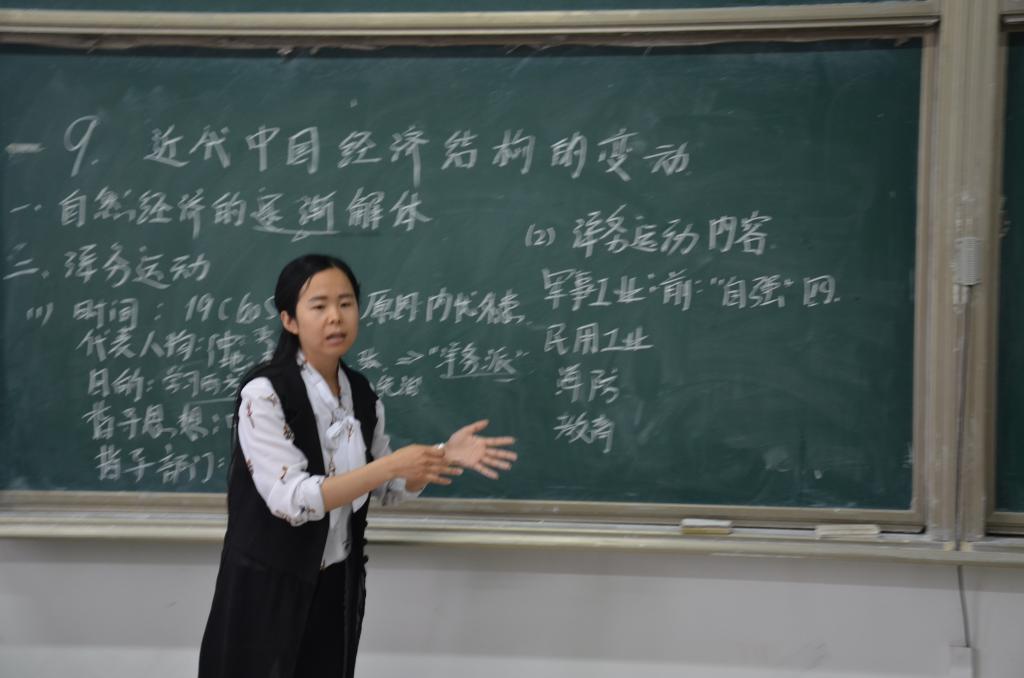 9. 近代中国经济结构的变动
一. 自然经济的逐渐解体
二. 洋务运动
(1) 时间: 19C60S
代表人物: 张 ⇒ "洋务派"
目的: 学习西
指导思想:
指导部门:
(2) 洋务运动内容
军事工业: 前: "自强" 四.
民用工业
海防
教育